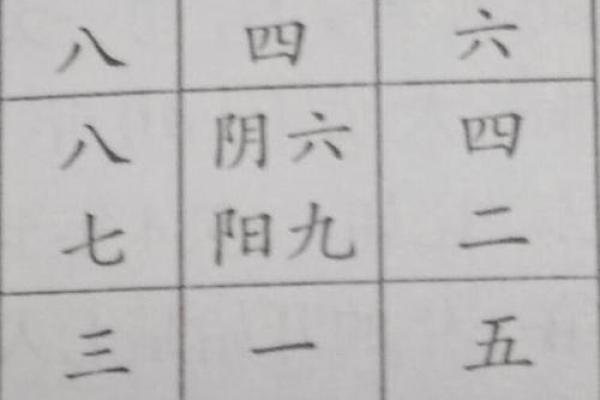 八 四 六
八 阴六 四
七 阳九 二
三 一 五